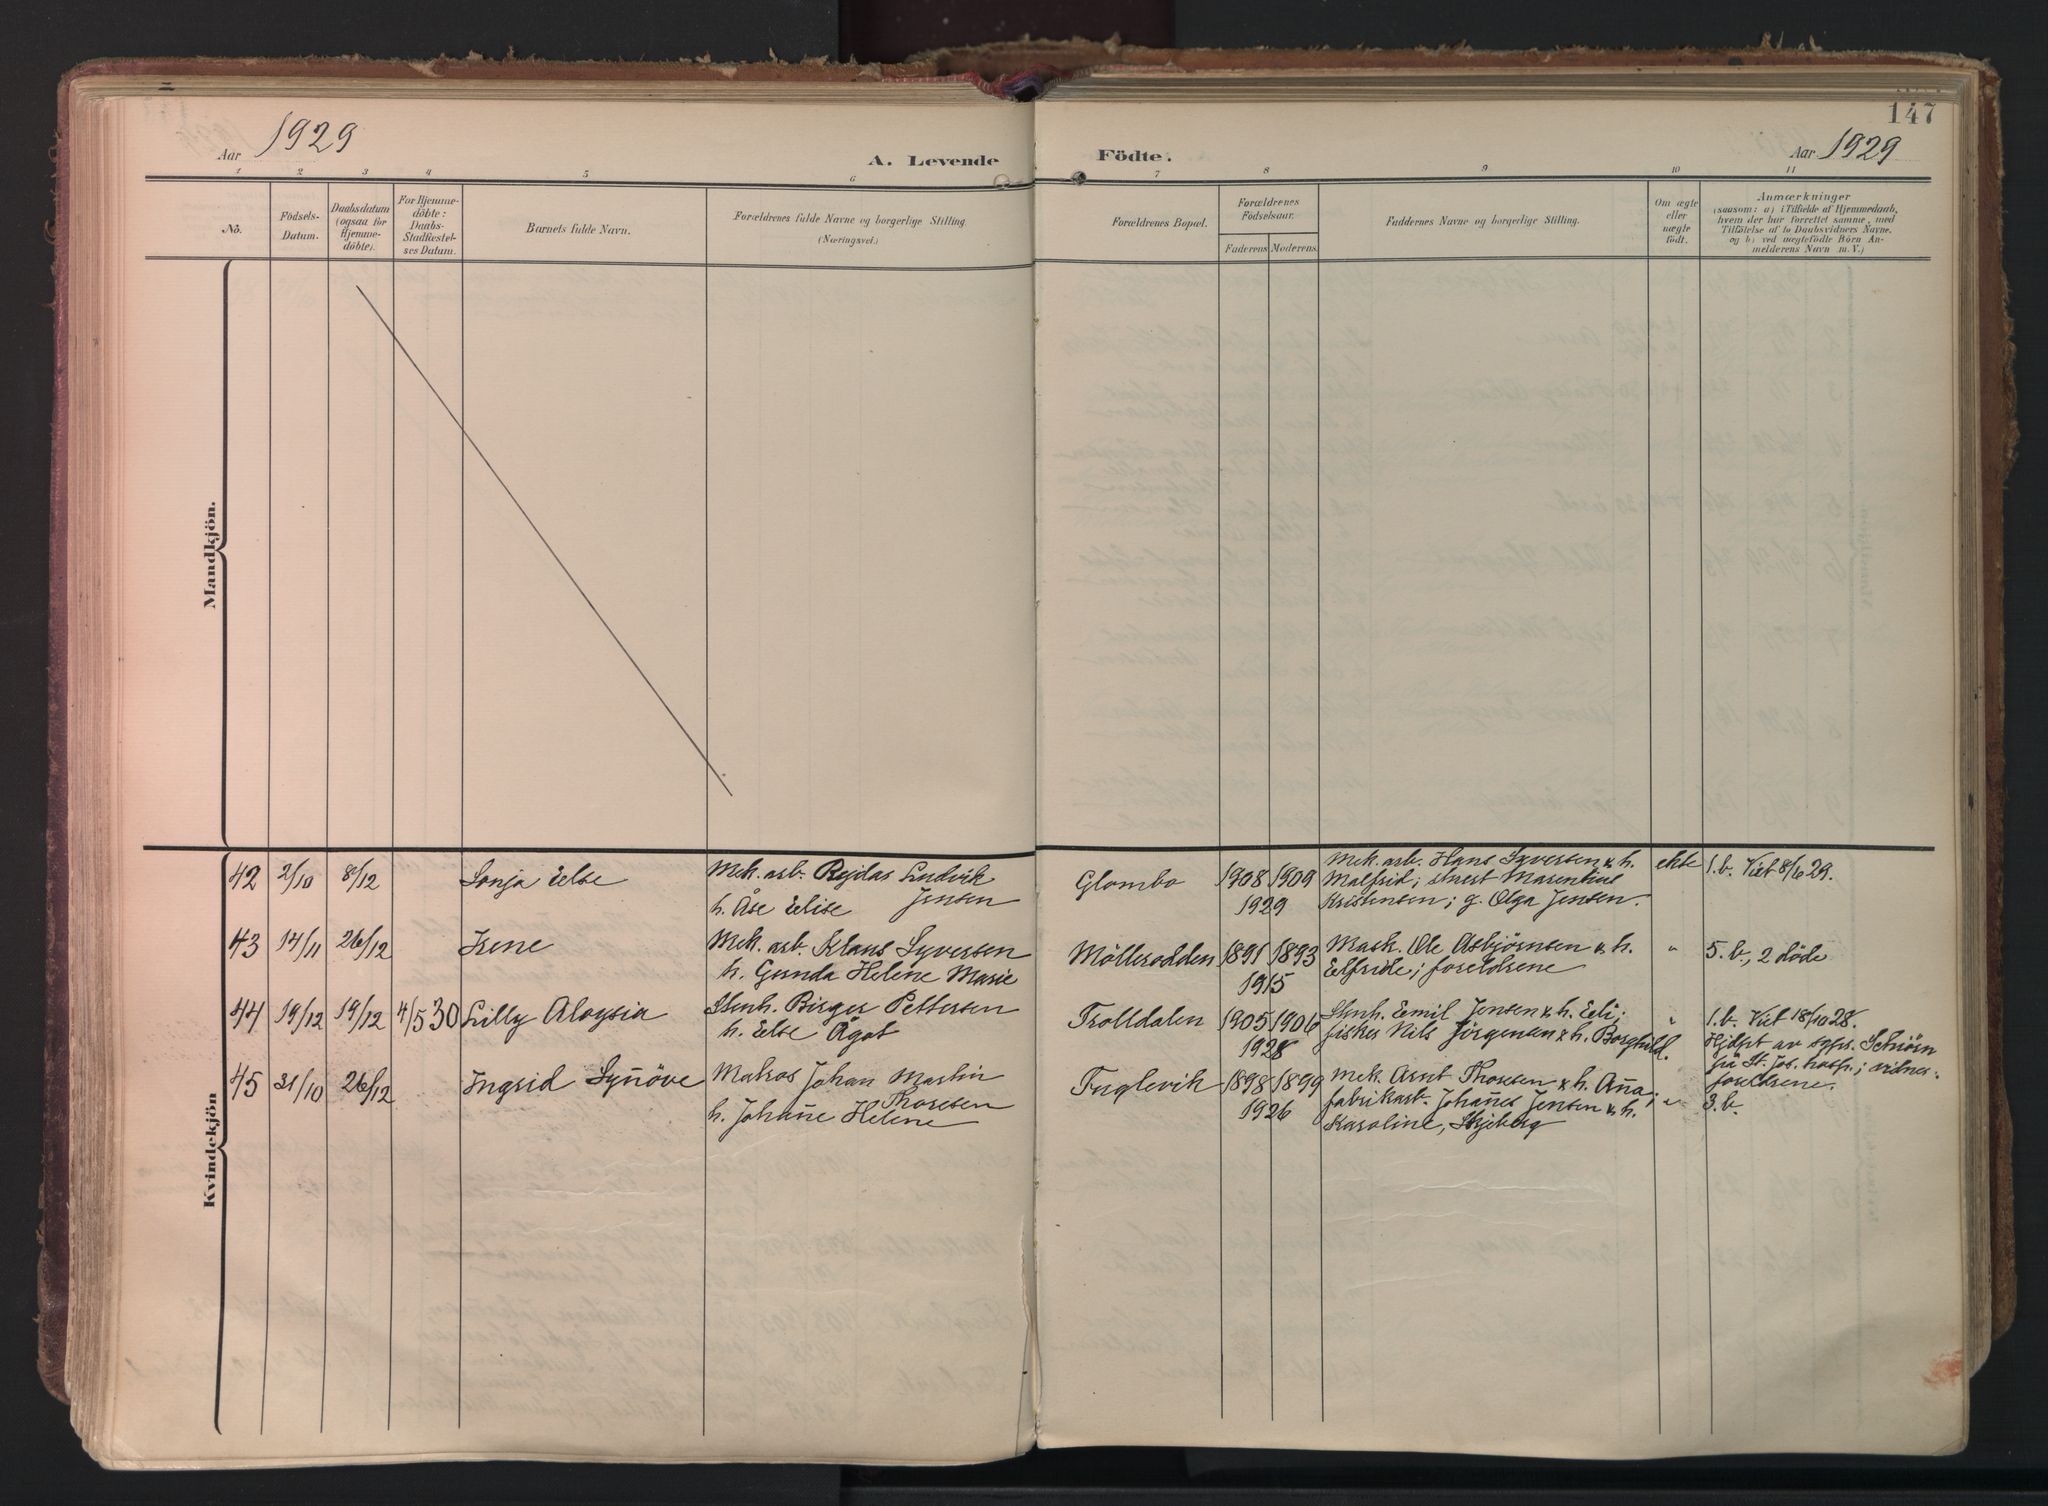 147
Aar 1929
A. Levende Födte.
Aar 1929
1 2 3 4 5 6 7 8 9 10 11
No.
Födsels-
Datum.
Daabsdatum
(ogsaa for
Hjemme-
döbte).
For Hjemme-
döbte:
Daabs-
Stadfæstel-
ses Datum.
Barnets fulde Navn.
Forældrenes fulde Navne og borgerlige Stilling.
(Næringsvei.)
Forældrenes Bopæl.
Forældrenes
Födselsaar.
Faderens Moderens.
Faddernes Navne og borgerlige Stilling.
Om ægte
eller
uægte
födt.
Anmærkninger
(saasom: a) i Tilfælde af Hjemmedaab,
hvem der har forrettet samme, med
Tilföielse af to Daabsvidners Navne.
og b) ved uægtefödte Börn An-
melderens Navn m. V.)
Mandkjön.
Kvindekjön
42 2/10 8/12 Sonja Else
Mek. arb. Reidar Ludvik
Jensen
h. Åse Elise
Glombo
1908 1909
1929
Mek. arb. Hans Syversen & h.
Malfrid; Marentine
Kristensen; g. Olga Jensen.
ekte
1. b. Viet 8/6 29.
43 17/11 26/12 Irene
Mek. arb. Klaus Syversen
h. Gunda Helene Marie
Möllerodden
1891 1893
1915
Mask. Ole Asbjörnsen & h.
Elfride; foreldrene
"
5. b., 2 döde
44 19/12 19/12 4/5 30 Lilly Aloysia
Stenh. Birger Pettersen
h. Else Ågot
Trolldalen
1905 1906
1928
Stenh. Emil Jensen & h. Eli;
fisker Nils Jörgensen & h. Borghild.
"
1. b. Viet 18/10 28.
Hjdpt av
frå St. Jos. hosp.; vidner:
foreldrene.
45 31/10 26/12 Ingrid Syn̄öve
Matros Johan Martin
Thoresen
h. Johan̄e Helene
Fuglevik
1898 1899
1926
Mek. Arnt Thoresen & h. An̄a;
fabrikarb. Johan̄es Jensen & h.
Karoline, Skjeberg
"
3. b.